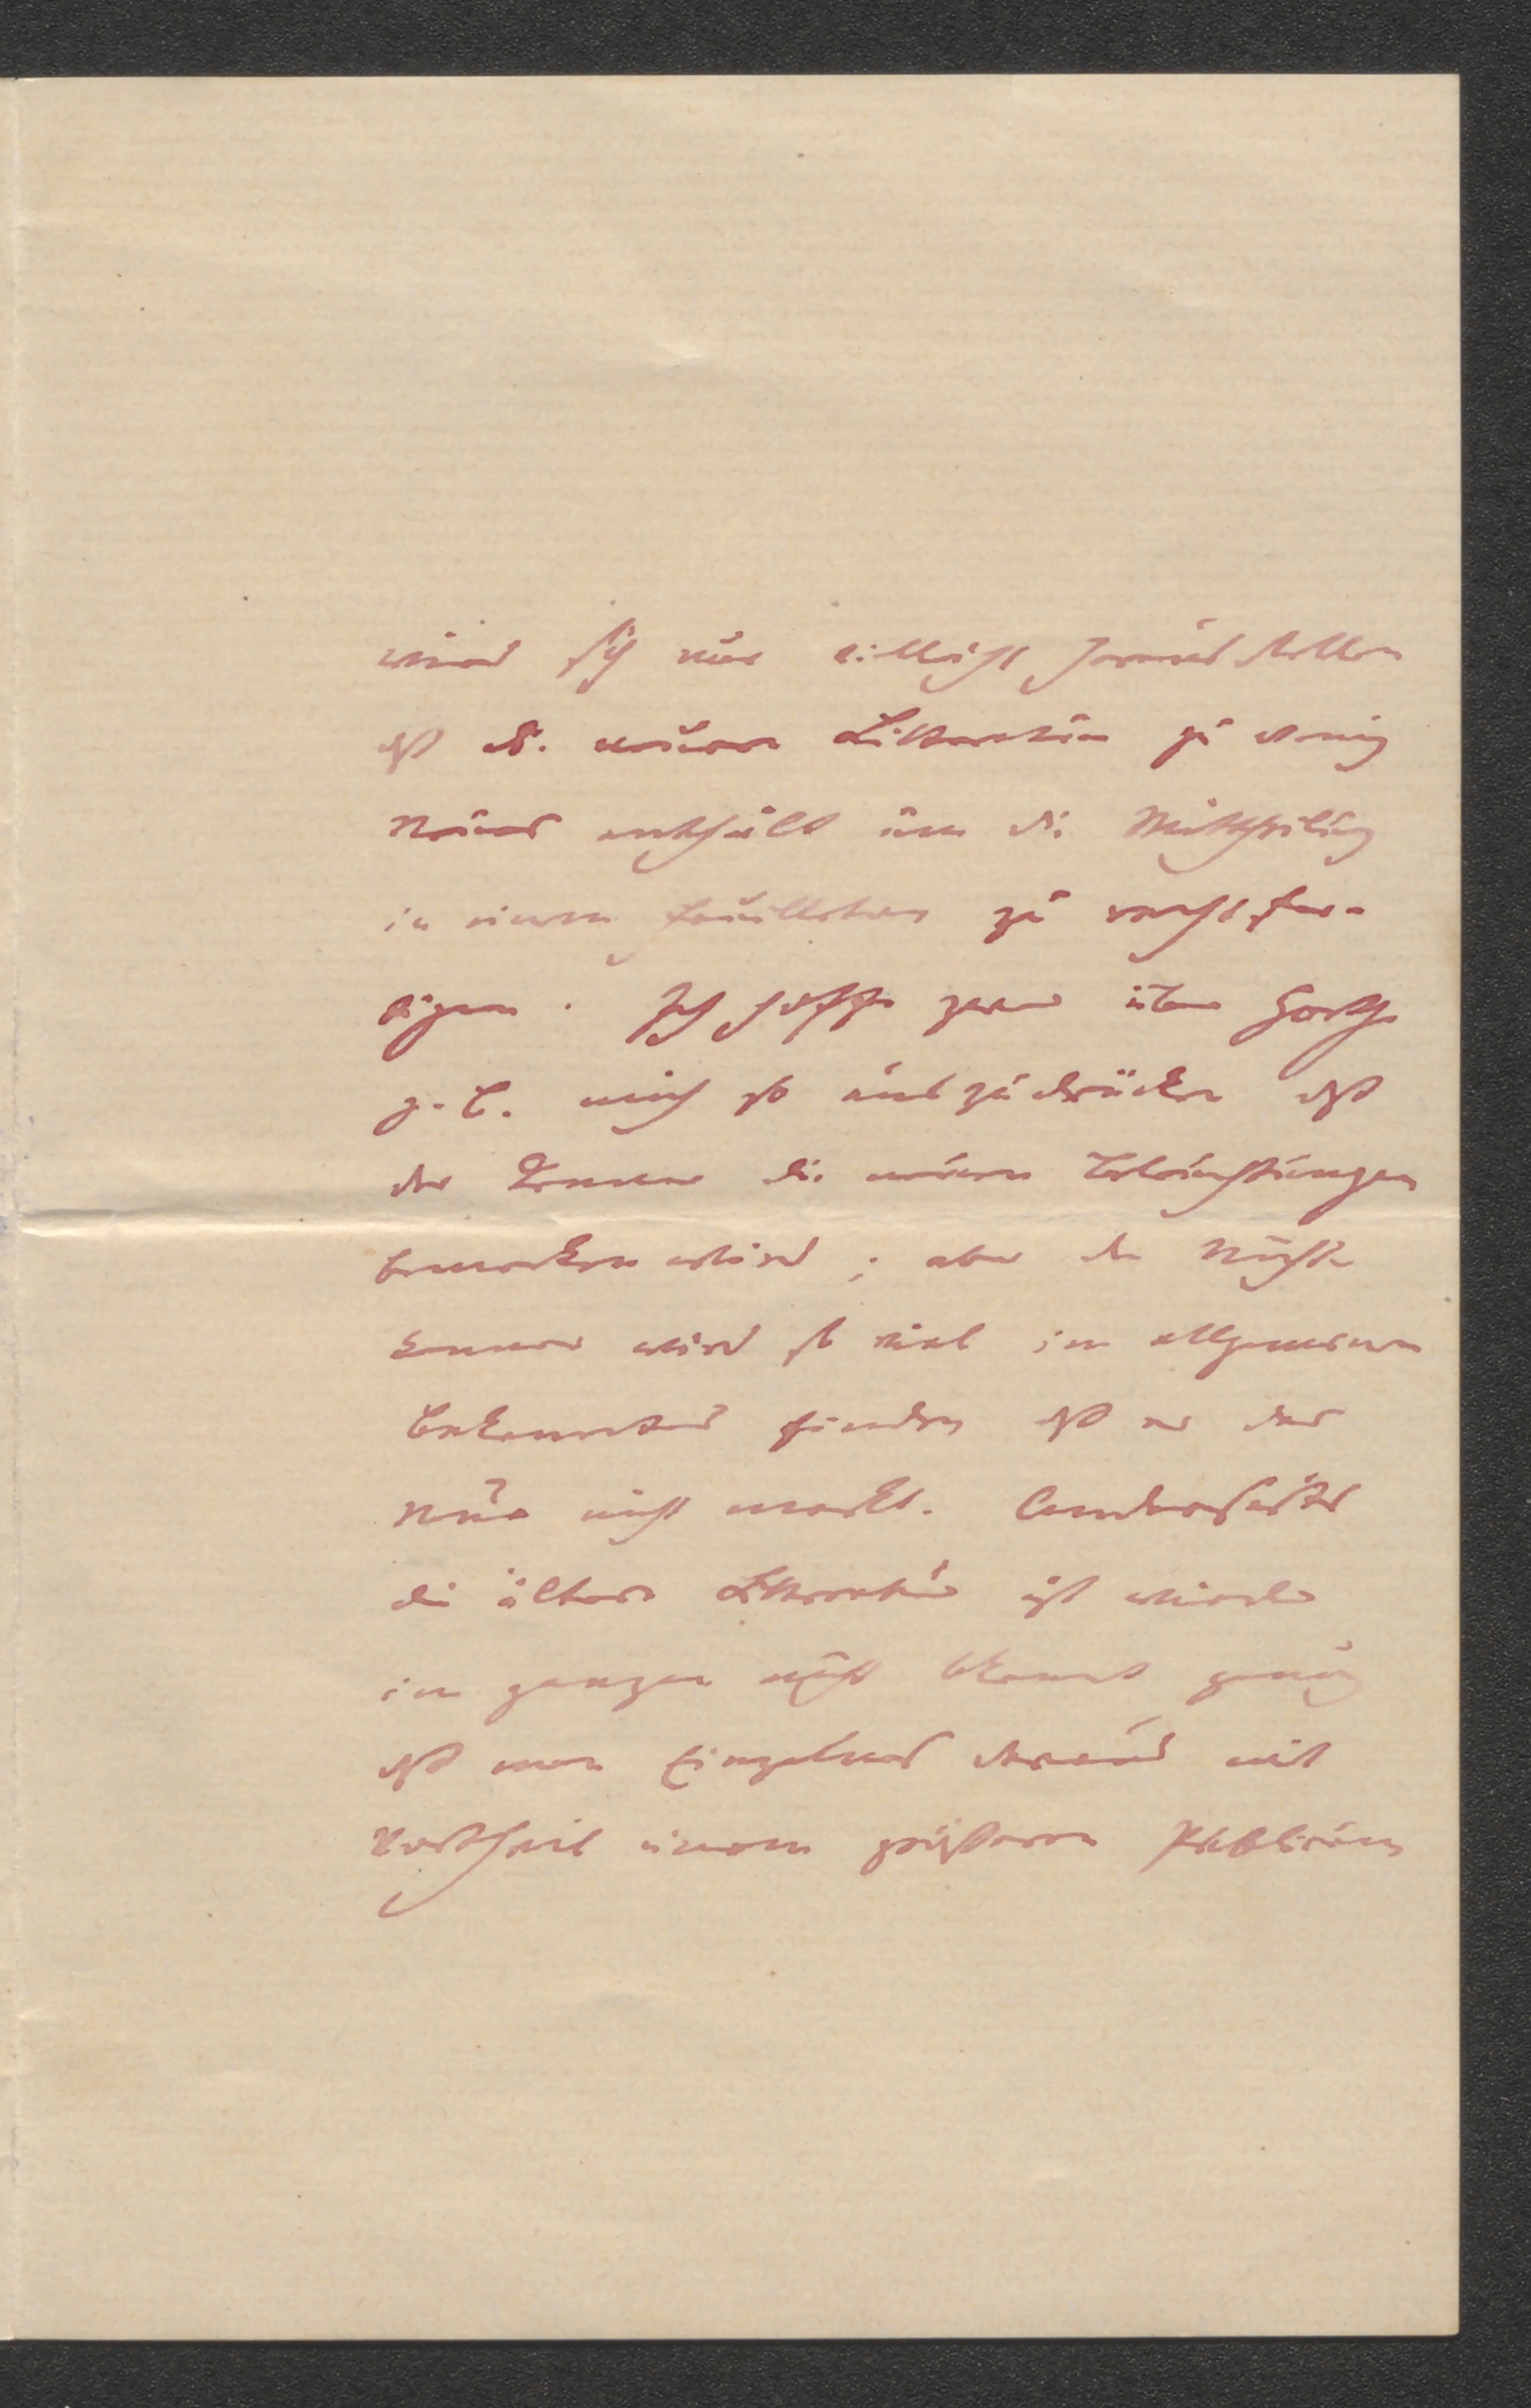 wird sich nur vielleicht herausstellen
dß die neuere Litteratur zu wenig
Neues enthält um die Mittheilung
in einem Feuilleton zu rechtfer-
tigen. Ich hoffe zwar über Goethe
z. B. mich so auszudrücken dß
der Kenner die neuen Beleuchtungen
bemerken wird; aber der Nicht-
kenner wird so viel im allgemeinen
Bekanntes finden dß er das
Neue nicht merkt. Anderseits
die ältere Litteratur ist wieder
im ganzen nicht bekannt genug
dß man Einzelnes daraus mit
Vortheil einem größeren Publicum